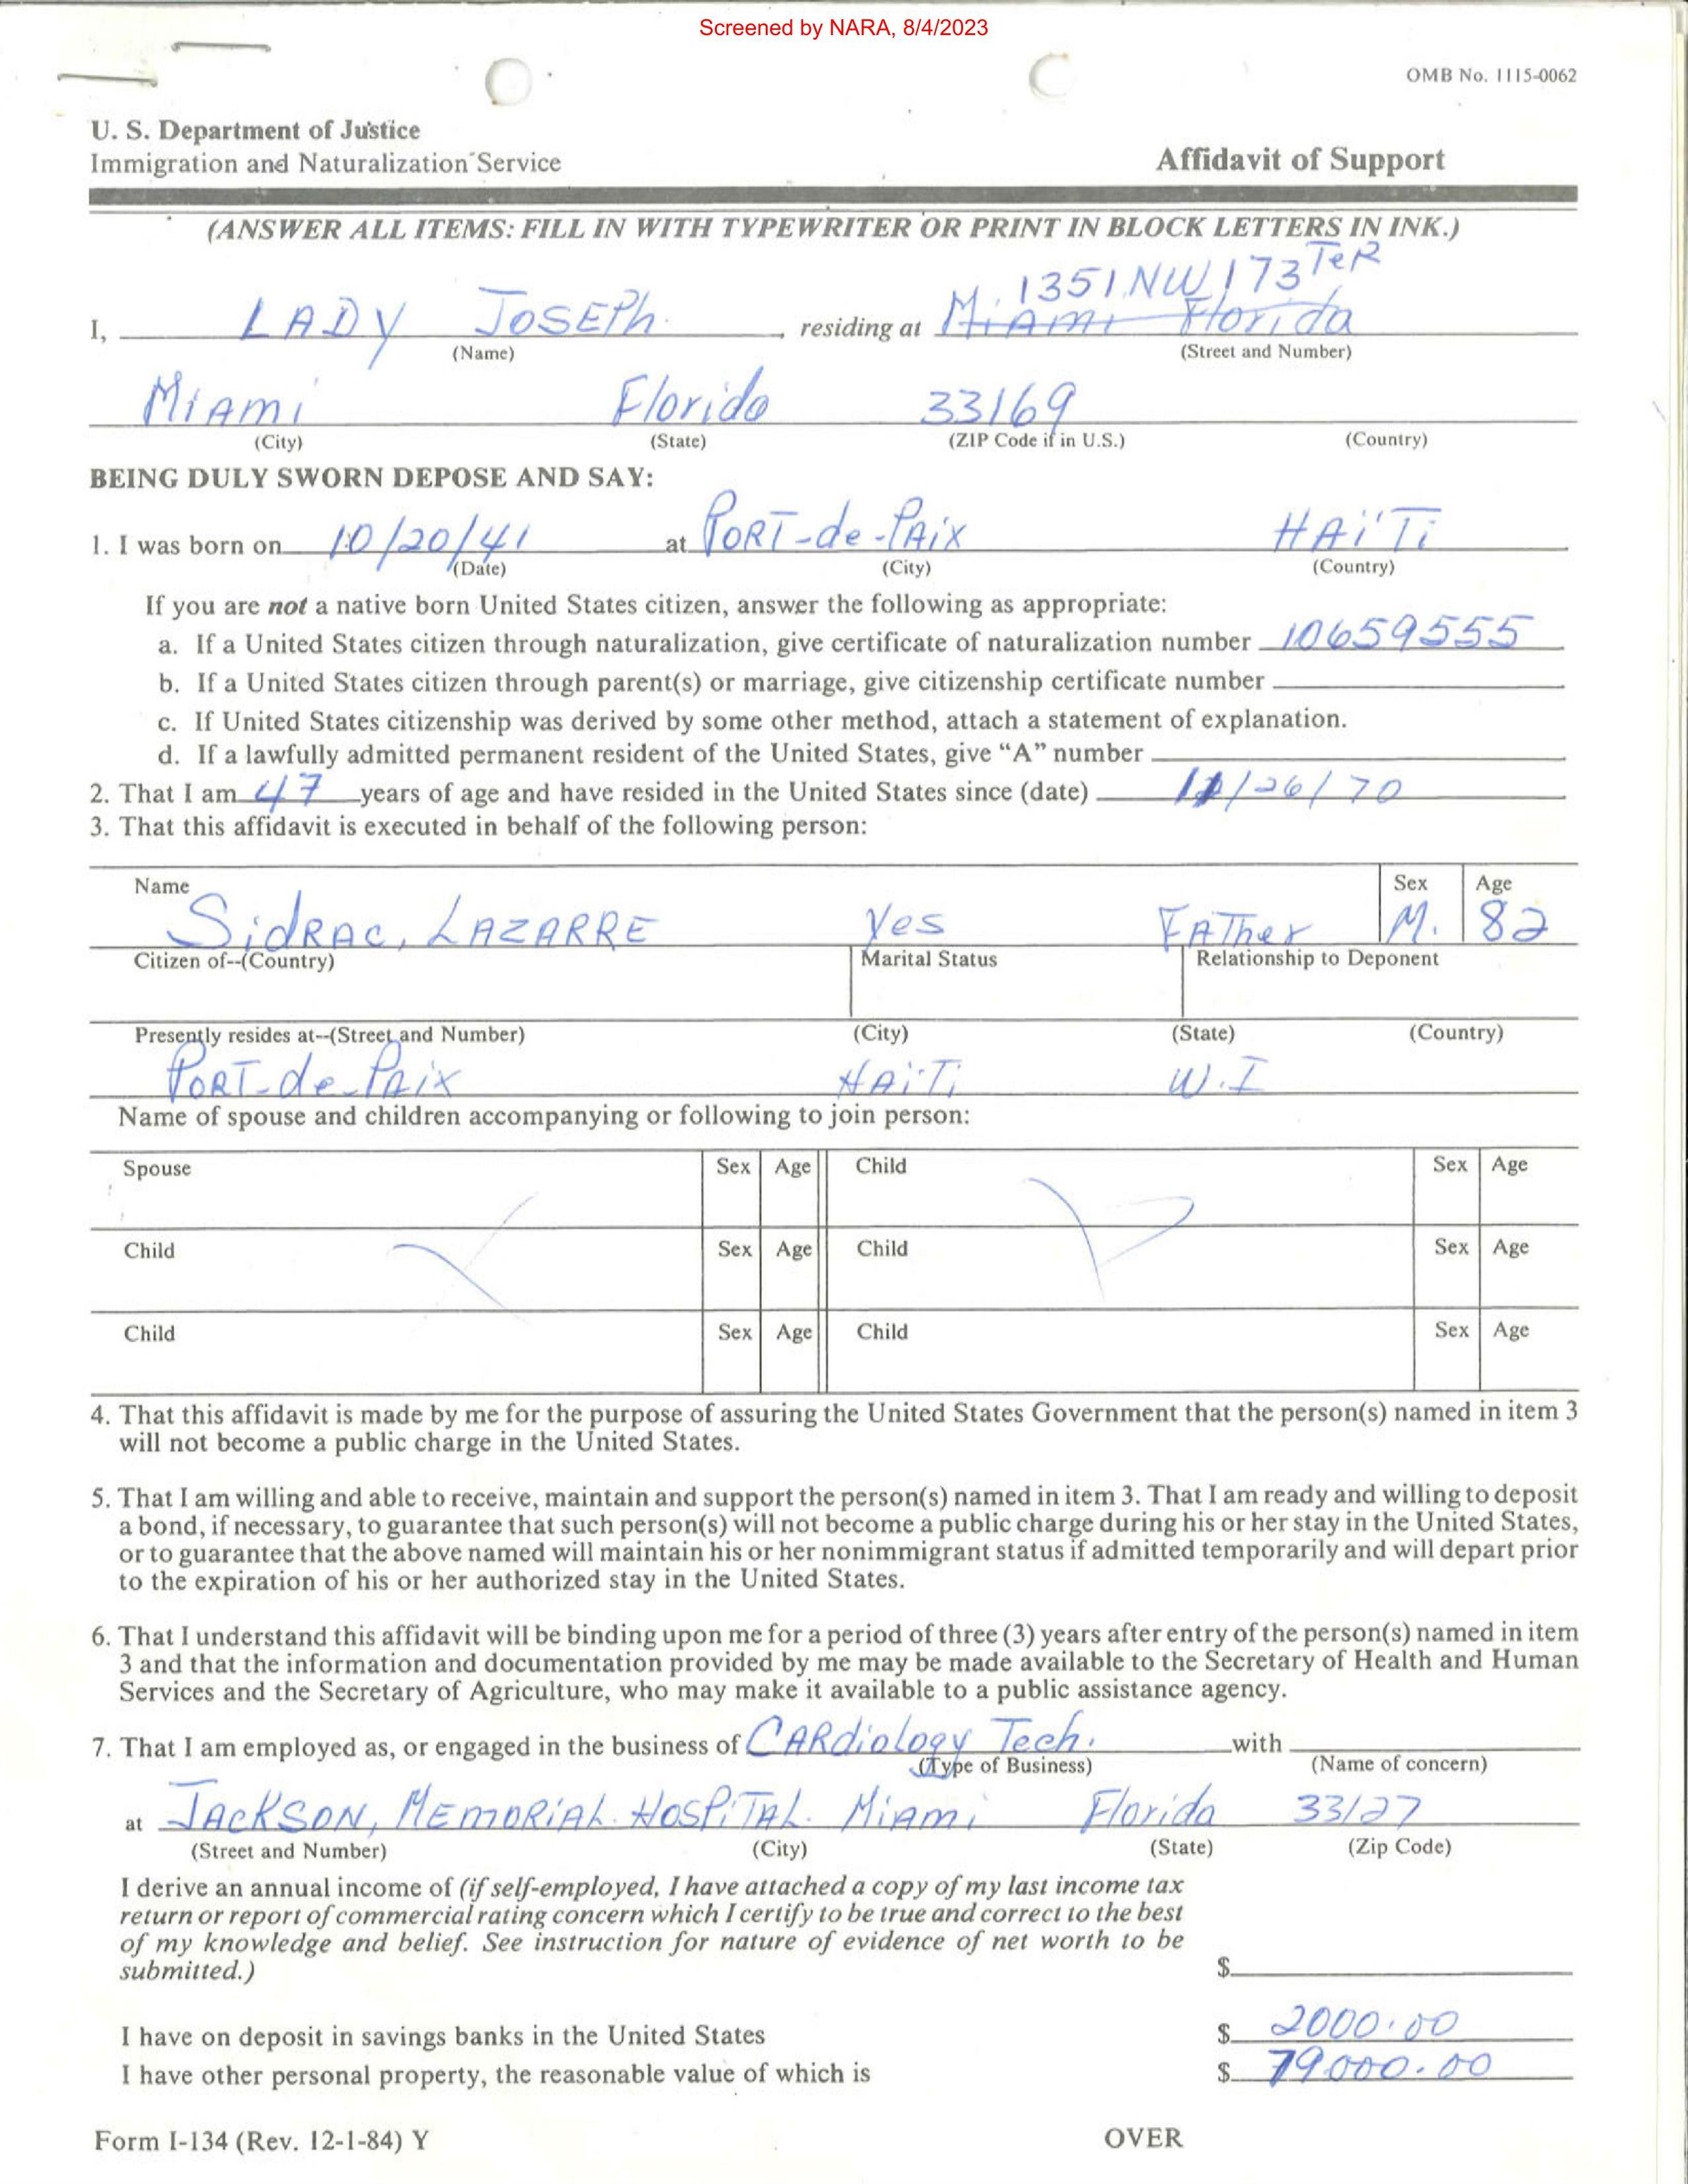 Screened by NARA, 8/4/2023
OMB No. 1115-0062
U. S. Department of Justice
Immigration and Naturalization Service
Affidavit of Support
(ANSWER ALL ITEMS: FILL IN WITH TYPEWRITER OR PRINT IN BLOCK LETTERS IN INK.)
1351 NW 173 TeR
I, LADY JOSEPh. , residing at M. Miami Florida
(Name) (Street and Number)
Miami Florida 33169
(City) (State) (ZIP Code if in U.S.) (Country)
BEING DULY SWORN DEPOSE AND SAY:
1. I was born on 10/20/41 at PORT-de-PAix HAïTi
(Date) (City) (Country)
If you are not a native born United States citizen, answer the following as appropriate:
a. If a United States citizen through naturalization, give certificate of naturalization number 10659555
b. If a United States citizen through parent(s) or marriage, give citizenship certificate number
c. If United States citizenship was derived by some other method, attach a statement of explanation.
d. If a lawfully admitted permanent resident of the United States, give “A” number
2. That I am 47 years of age and have resided in the United States since (date) /26/70
3. That this affidavit is executed in behalf of the following person:
Name Sex Age
SidRAC, LAZARRE Yes FATher M. 82
Citizen of--(Country) Marital Status Relationship to Deponent
Presently resides at--(Street and Number) (City) (State) (Country)
PORT-de-PAix HAïTi W.I
Name of spouse and children accompanying or following to join person:
Spouse Sex Age Child Sex Age
Child Sex Age Child Sex Age
Child Sex Age Child Sex Age
4. That this affidavit is made by me for the purpose of assuring the United States Government that the person(s) named in item 3
will not become a public charge in the United States.
5. That I am willing and able to receive, maintain and support the person(s) named in item 3. That I am ready and willing to deposit
a bond, if necessary, to guarantee that such person(s) will not become a public charge during his or her stay in the United States,
or to guarantee that the above named will maintain his or her nonimmigrant status if admitted temporarily and will depart prior
to the expiration of his or her authorized stay in the United States.
6. That I understand this affidavit will be binding upon me for a period of three (3) years after entry of the person(s) named in item
3 and that the information and documentation provided by me may be made available to the Secretary of Health and Human
Services and the Secretary of Agriculture, who may make it available to a public assistance agency.
7. That I am employed as, or engaged in the business of CARdiology Tech. with
(Type of Business) (Name of concern)
at JACKSON, MEMORiAL HOSPiTAL. Miami Florida 33127
(Street and Number) (City) (State) (Zip Code)
I derive an annual income of (if self-employed, I have attached a copy of my last income tax
return or report of commercial rating concern which I certify to be true and correct to the best
of my knowledge and belief. See instruction for nature of evidence of net worth to be
submitted.) $
I have on deposit in savings banks in the United States $ 2000.00
I have other personal property, the reasonable value of which is $ 79000.00
Form I-134 (Rev. 12-1-84) Y
OVER